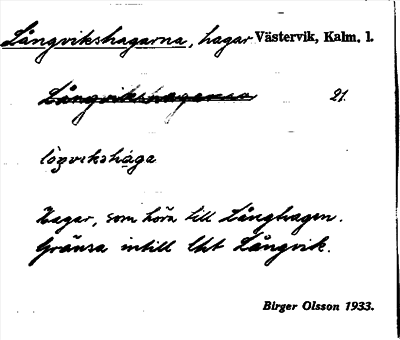 Långvikshagarna, hagar Västervik, Kalm. l.
Långvikshagarna 21.
löŋvikshaga
Hagar, som höra till Långhagen.
Gränsa intill Lht Långvik.
Birger Olsson 1933.